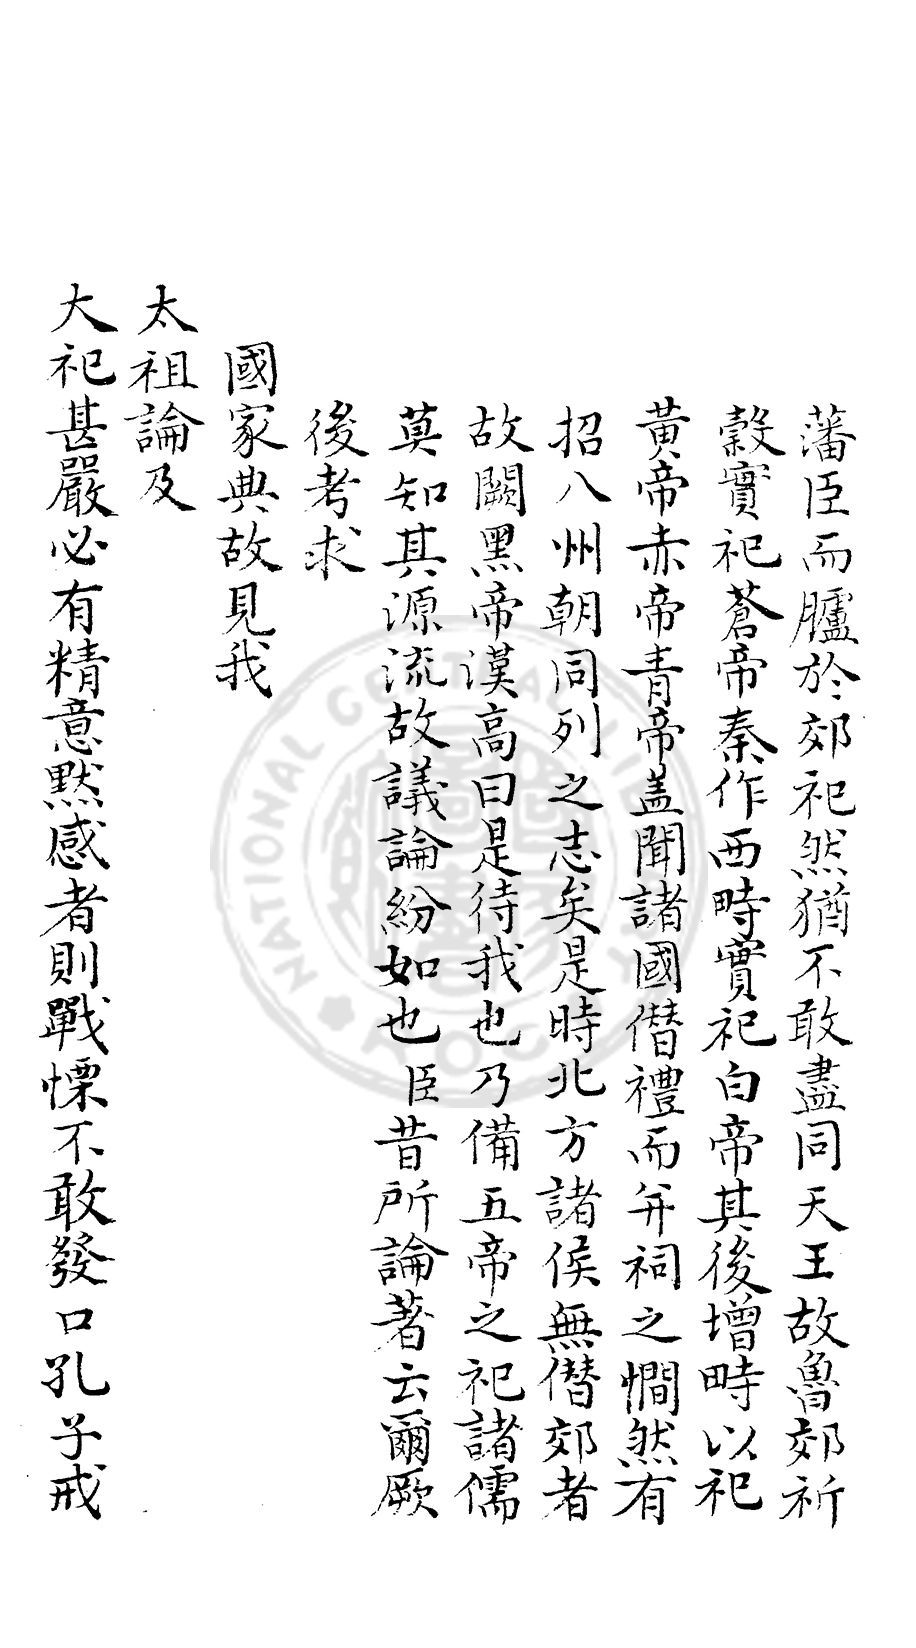 藩臣而臚於郊祀然猶不敢盡同天王故魯郊祈
穀實祀蒼帝秦作西畤實祀白帝其後增畤以祀
黃帝赤帝青帝盖聞諸國僭禮而并祠之憪然有
招八州朝同列之志矣是時北方諸侯無僭郊者
故闕黑帝漢高曰是待我也乃備五帝之祀諸儒
莫知其源流故議論紛如也臣昔所論著云爾厥
後考求
國家典故見我
太祖論及
大祀甚嚴必有精意默感者則戰慄不敢發口孔子戒
NATIONAL CENTRAL LIBRARY
R.O.C.